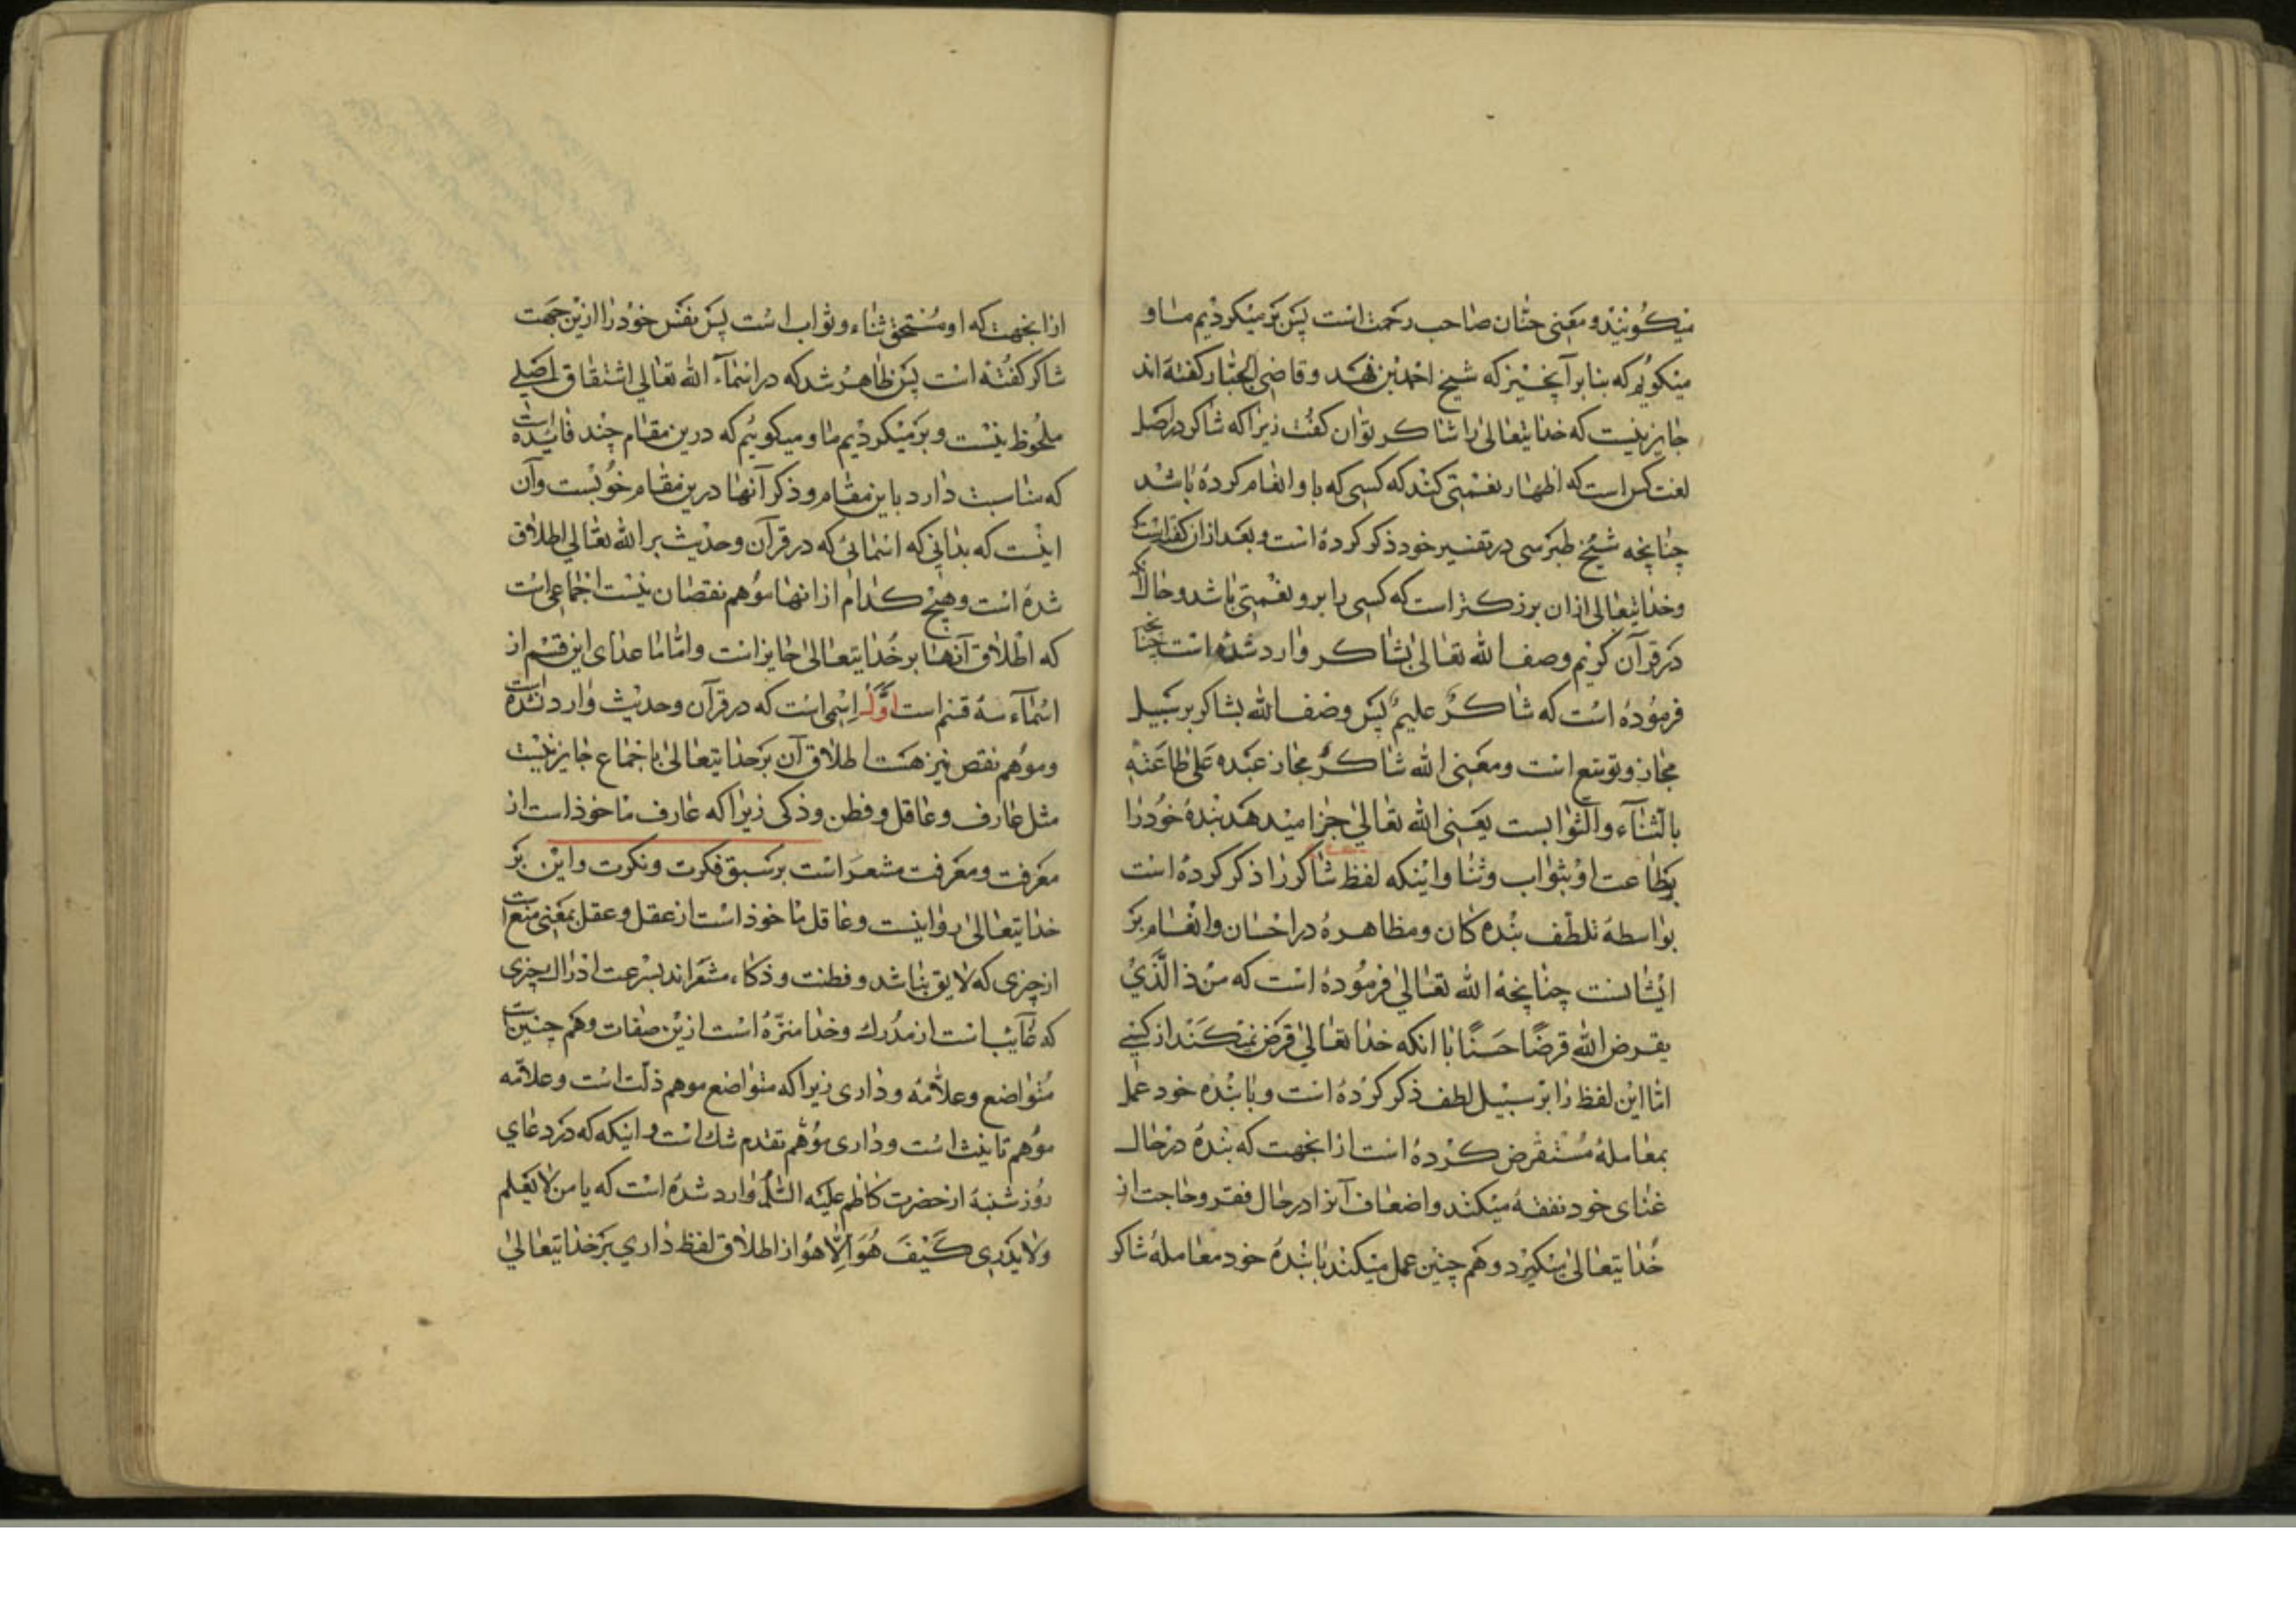 میکویند و معنی حنّان صاحب رحمت است پس برمیکردیم ما و
میکوییم که بنابر آنچیز که شیخ احمد بن فهد و قاضی الجبّار کفته اند
جایز نیست که خدایتعالی را شاکر توان کفت زیرا که شاکر در اصل
لغت کس است که اظهار نعمتی کند که کسی که باو انعام کرده باشد
چنانچه شیخ طبرسی در تفسیر خود ذکر کرده است و بعد از ان کفته است که
وخدایتعالی از ان بزرکتر است که کسی را برو نعمتی باشد و حال انکه
در قرآن کریم وصف الله تعالی بشاکر وارد شده است چنانچه
فرموده است که شاکرٌ علیمٌ پس وصف الله بشاکر بر سبیل
مجاز و توسّع است و معنی الله شاکرٌ مجاز عبده علی طاعته
بالثّناء والثّوابست یعنی الله تعالی جزا میدهد بنده خود را
بطاعت او بثواب و ثنا و اینکه لفظ شاکر را ذکر کرده است
بواسطه تلطّف بنده کان و مظاهره در احسان و انعام بر
ایشانست چنانچه الله تعالی فرموده است که من ذا الّذی
یقرض الله قرضًا حسنًا با انکه خدا تعالی قرض نمیکند از کسی
امّا این لفظ را بر سبیل لطف ذکر کرده است و با بنده خود عمل
بمعامله مستقرض کرده است از انجهت که بنده در حال
غنای خود نفقه میکند و اضعاف آنرا در حال فقر و حاجت از
خدایتعالی میکیرد و هم چنین عمل میکند با بنده خود معامله شاکر
از انجهت که او مستحق ثناء و ثواب است پس نفس خود را ازین جهت
شاکر کفته است پس ظاهر شد که در اسماء الله تعالی اشتقاق اصلی
ملحوظ نیست و برمیکردیم ما و میکوییم که درین مقام چند فایده است
که مناسبت دارد باین مقام و ذکر آنها درین مقام خوبست و آن
اینست که بدانی که اسمائی که در قرآن و حدیث بر الله تعالی اطلاق
شده است و هیچ کدام از انها موهم نقصان نیست اجماعی است
که اطلاق آنها بر خدایتعالی جایز است و امّا ما عدای این قسم از
اسماء سه قسم است اوّل اسمی است که در قرآن و حدیث وارد نشده است
و موهم نقص نیز هست اطلاق آن بر خدایتعالی باجماع جایز نیست
مثل عارف و عاقل و فطن و ذکی زیرا که عارف ماخوذ است از
معرفت و معرفت مشعر است بر سبق فکرت و نکرت و این بر
خدایتعالی روا نیست و عاقل ماخوذ است از عقل و عقل بمعنی منع است
از چیزی که لایق نباشد و فطنت و ذکاء مشعر اند بسرعت ادراک چیزی
که غایب است از مدرک و خدا منزّه است ازین صفات و هم چنین است
متواضع و علّامه و داری زیرا که متواضع موهم ذلّت است و علّامه
موهم تانیث است و داری موهم تقدم شک است و اینکه که در دعای
روز شنبه از حضرت کاظم علیه السّلم وارد شده است که یا من لا یعلم
ولا یدری کیف هو الّا هو از اطلاق لفظ داری بر خدایتعالی